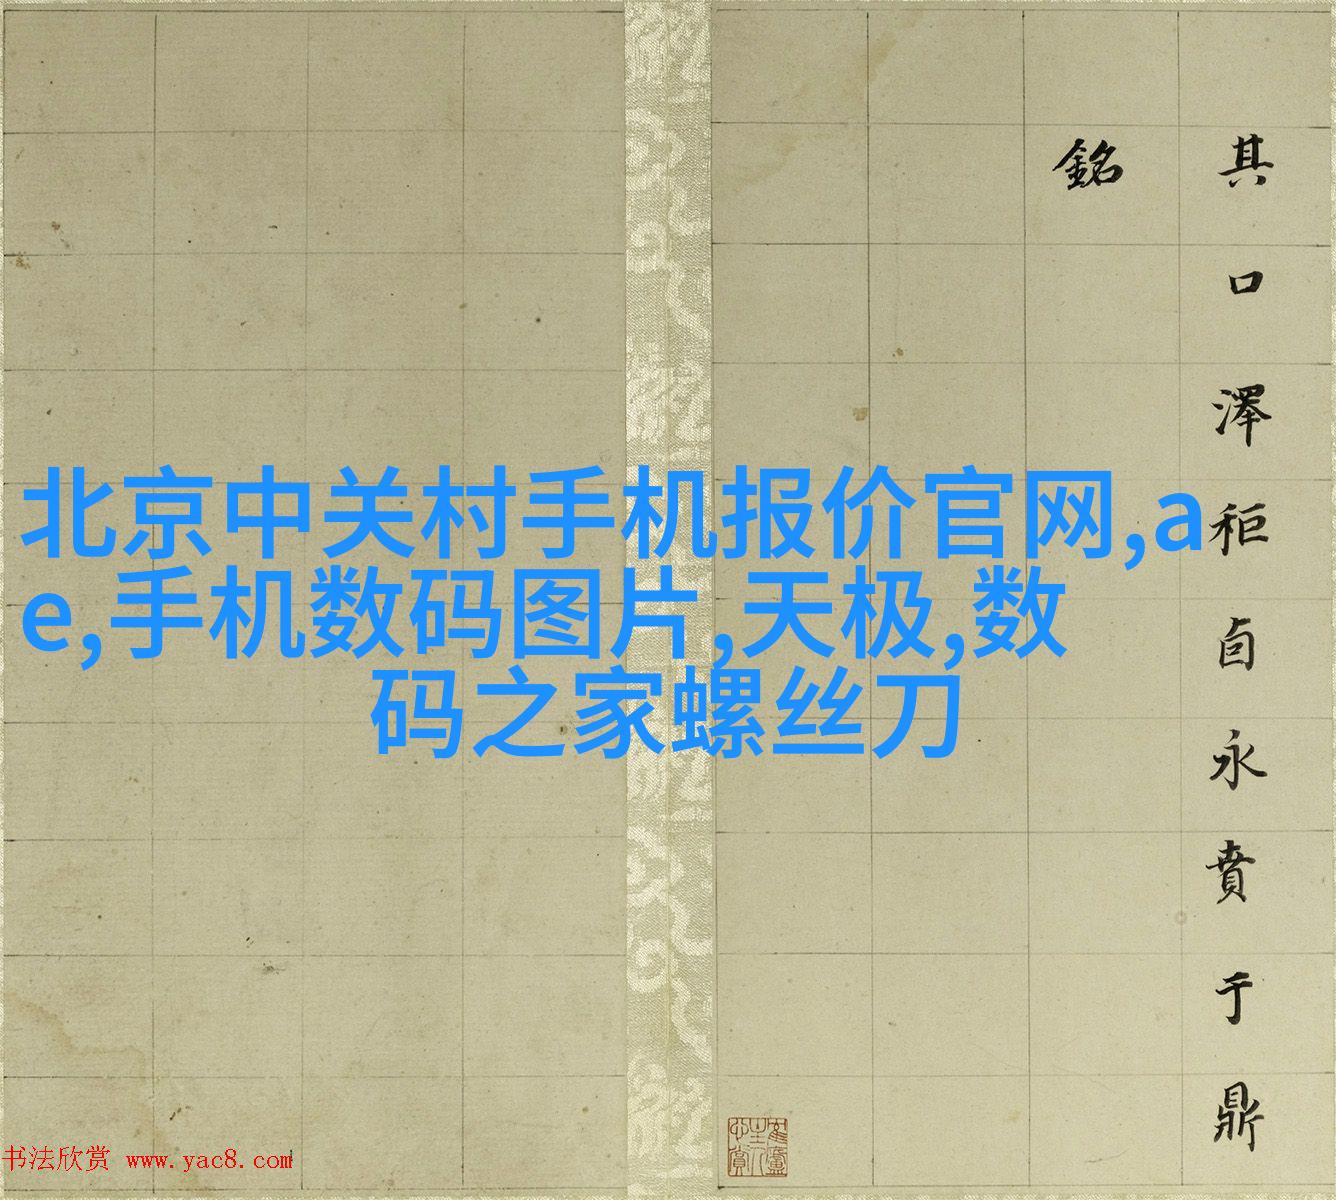 其口澤秬卣永賁于鼎
銘
北京中关村手机报价官网,a
e,手机数码图片,天极,数
码之家螺丝刀
书法欣赏 www.yac8.com